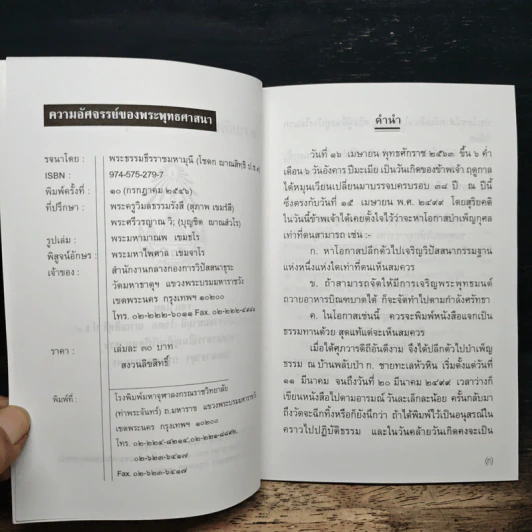 ความอัศจรรย์ของพระพุทธศาสนา
รจนาโดย : พระธรรมธีรราชมหามุนี (โชดก ญาณสิทฺธิ ป.ธ.๙)
ISBN : 974-575-279-7
พิมพ์ครั้งที่ : ๑๐ (กรกฎาคม ๒๕๔๖)
ที่ปรึกษา : พระครูวิมลธรรมรังสี (สุภาพ เขมรํสี)
พระศรีวรญาณ วิ. (บุญชิต ญาณสํวโร)
รูปเล่ม : พระมหามาณพ เขมธโร
พิสูจน์อักษร : พระมหาไพศาล เขมจาโร
เจ้าของ : สำนักงานกลางกองการวิปัสสนาธุระ
วัดมหาธาตุฯ แขวงพระบรมมหาราชวัง
เขตพระนคร กรุงเทพฯ ๑๐๒๐๐
โทร. ๐๒-๒๒๒-๖๐๑๑ Fax.
ราคา : เล่มละ ๓๐ บาท
สงวนลิขสิทธิ์
พิมพ์ที่ โรงพิมพ์มหาจุฬาลงกรณราชวิทยาลัย
(ท่าพระจันทร์) ถ.มหาราช แขวงพระบรมมหาราชวัง
เขตพระนคร กรุงเทพฯ ๑๐๒๐๐
โทร. ๐๒-๒๒๑-๘๒๑๔,๐๒-๒๒๑-๘๘๙๒,
๐๒-๖๒๓-๖๔๑๗
Fax. ๐๒-๖๒๓-๖๔๑๗
คำนำ
วันที่ ๑๖ เมษายน พุทธศักราช ๒๕๖๓ ขึ้น ๖ ค่ำ
เดือน ๖ วันอังคาร ปีมะเมีย เป็นวันเกิดของข้าพเจ้า ฤดูกาล
ได้หมุนเวียนเปลี่ยนมาบรรจบครบรอบ ๓๘ ปี ณ ปีนี้
ซึ่งตรงกับวันที่ ๑๕ เมษายน พ.ศ. ๒๔๙๙ โดยสุริยคติ
ในวันนี้ข้าพเจ้าได้เคยตั้งใจไว้ว่าจะหาโอกาสบำเพ็ญกุศล
เท่าที่ตนสามารถ เช่น :-
ก. หาโอกาสปลีกตัวไปเจริญวิปัสสนากรรมฐาน
แห่งหนึ่งแห่งใดเท่าที่ตนเห็นสมควร
ข. ถ้าสามารถจัดให้มีการเจริญพระพุทธมนต์
ถวายอาหารบิณฑบาตได้ ก็จะจัดทำไปตามกำลังศรัทธา
ค. ในโอกาสเช่นนี้ ควรจะพิมพ์หนังสือแจกเป็น
ธรรมทานด้วย สุดแท้แต่จะเห็นสมควร
เมื่อได้ศุภวารดิถีอันดีงาม จึงได้ปลีกตัวไปบำเพ็ญ
ธรรม ณ บ้านพลับป่า ก. ชายทะเลหัวหิน เริ่มตั้งแต่วันที่
๑๑ มีนาคม จนถึงวันที่ ๒๐ มีนาคม ๒๔๙๙ เวลาว่างก็
เขียนหนังสือไปตามอารมณ์ วันละเล็กละน้อย ครั้นกลับมา
ถึงวัดจะฉีกทิ้งหรือก็ยังนึกว่า ถ้าได้พิมพ์ไว้เป็นอนุสรณ์ใน
คราวไปปฏิบัติธรรม และในวันคล้ายวันเกิดคงจะเป็น
(ก)